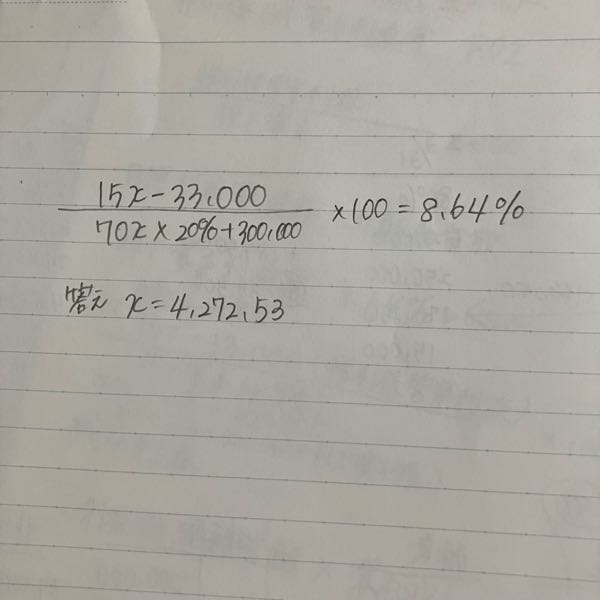 15x-33,000
70x×20%+300,000
×100=8.64%
答え x=4,272,53